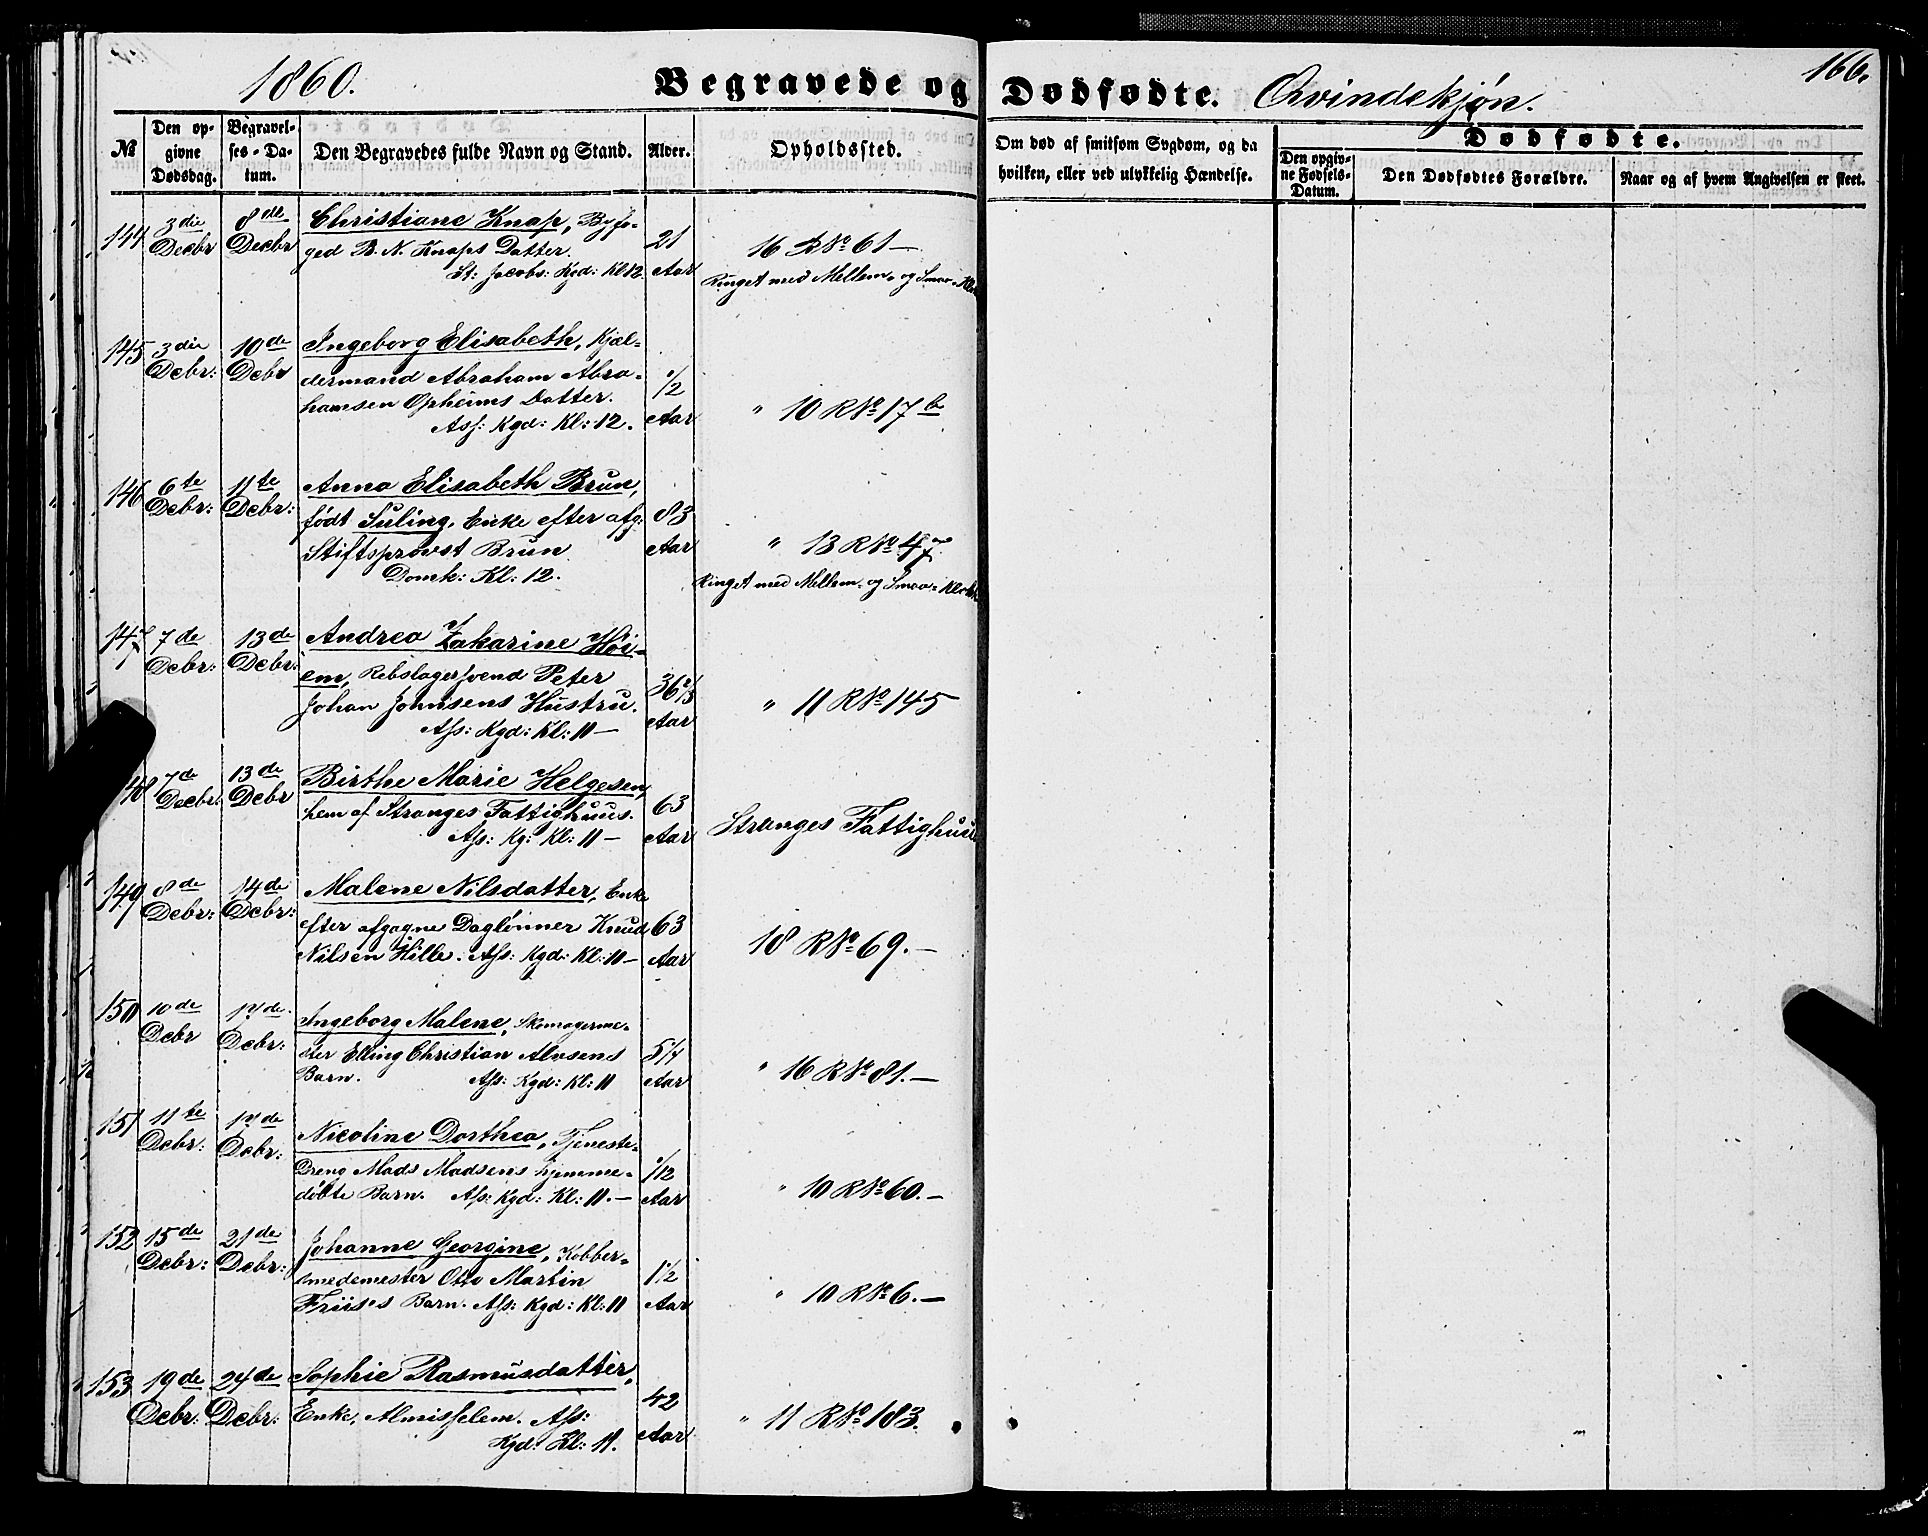 1860.
Begravede og Dødfødte. Qvindekjön.
166.
№
Den opgivne Dødsdag.
Begravelses-Datum.
Den Begravedes fulde Navn og Stand.
Alder.
Opholdssted.
Om død af smitsom Sygdom, og da hvilken, eller ved ulykkelig Hændelse.
Dødfødte.
Den opgivne Fødsels-Datum.
Den Dødfødtes Forældre.
Naar og af hvem Angivelsen er skeet.
144 3die Decbr 8de Decbr Christiane Knap, Byfo-
ged B. N. Knaps Datter. 21 16 R№ 61 —
St: Jacobs: Kgd: Kl 12. Aar Ringet med Mellem- og Smaa-
145 3die Debr: 10de Debr Ingeborg Elisabeth, Kjæl-
dermand Abraham Abra- 1/2
hamsen Opheims Datter. Aar " 10 R№ 17 b
Ass: Kgd: Kl: 12.
146 6te Debr: 11te Debr: Anna Elisabeth Brun,
født Suling, Enke efter afg: 83
Stiftsprovst Brun Aar " 13 R№ 47
Domk: Kl: 12. Ringet med Mellem- og Smaa-
147 7de Debr: 13de Debr: Andrea Zakarine Höi-
em, Rebslagersvend Peter 36
Johan Johnsens Hustru. Aar " 11 R№ 145
Ass: Kgd: Kl: 11 —
7de Decbr. 13de Debr Birthe Marie Helgesen,
Lem af Stranges Fattighuus. 63 Stranges Fattighuus
Ass: Kg: Kl: 11 — Aar
149 8de Debr: 14de Debr: Malene Nilsdatter, Enke
efter afgagne Daglönner Knud 63
Nilsen Hille. Ass: Kgd: Kl: 11 — Aar 18 R№ 69. —
150 10de Debr Debr: Ingeborg Malene, Skomagerme-
ster Elling Christian Alvsens
Barn. Ass: Kgd: Kl: 11 Aar " 16 R№ 81. —
151 11te Debr: Debr: Nicoline Dorthea, Tjeneste-
Dreng Mads Madsens hjemme- 1/12
döbte Barn. Ass: Kgd: Kl: 11. — Aar " 10 R№ 60. —
152 15de Debr: 21de Debr: Johanne Georgine, Kobber-
smedemester Otto Martin 1 1/2
Friises Barn. Ass: Kgd: Kl: 11 Aar " 10 R№ 6. —
153 19de Debr: 24de Debr: Sophie Rasmusdatter,
Enke, Almisselem. Ass: 42 " 11 R№ 183.
Kgd: Kl: 11. Aar